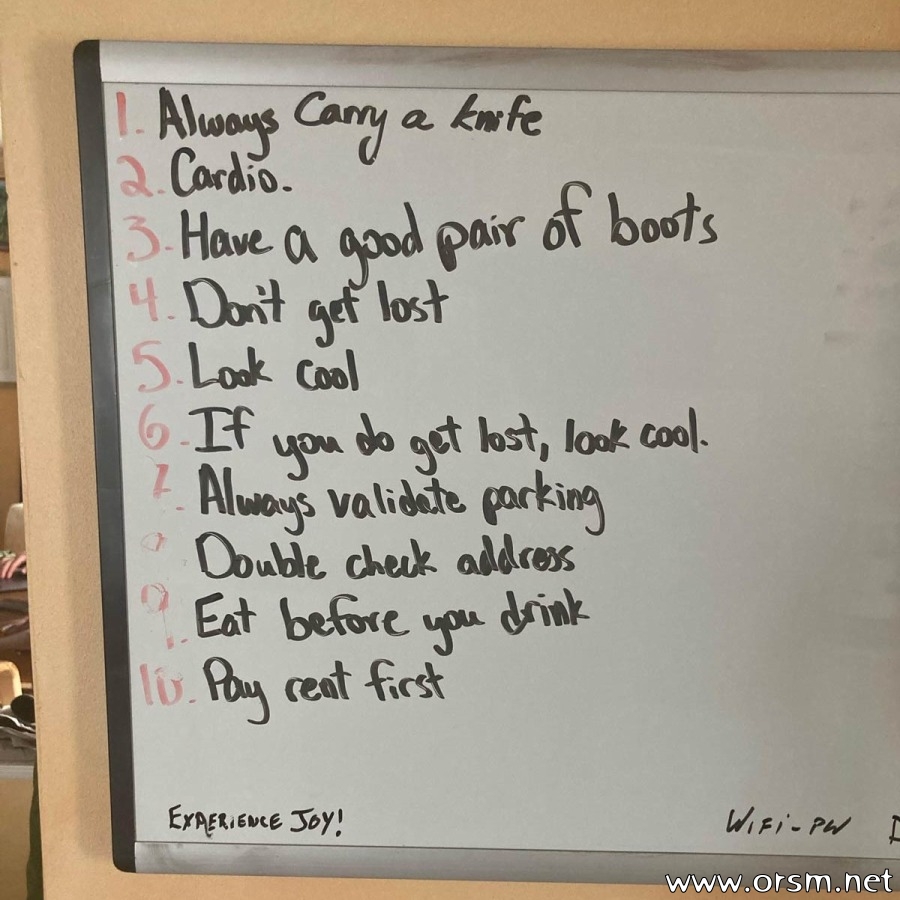 1. Always Carry a knife
2. Cardio.
3. Have a good pair of boots
4. Don't get lost
5. Look cool
6. If you do get lost, look cool.
7. Always validate parking
Double check address
9. Eat before you drink
10. Pay rent first
EXPERIENCE JOY!
WIFI-PW
www.orsm.net